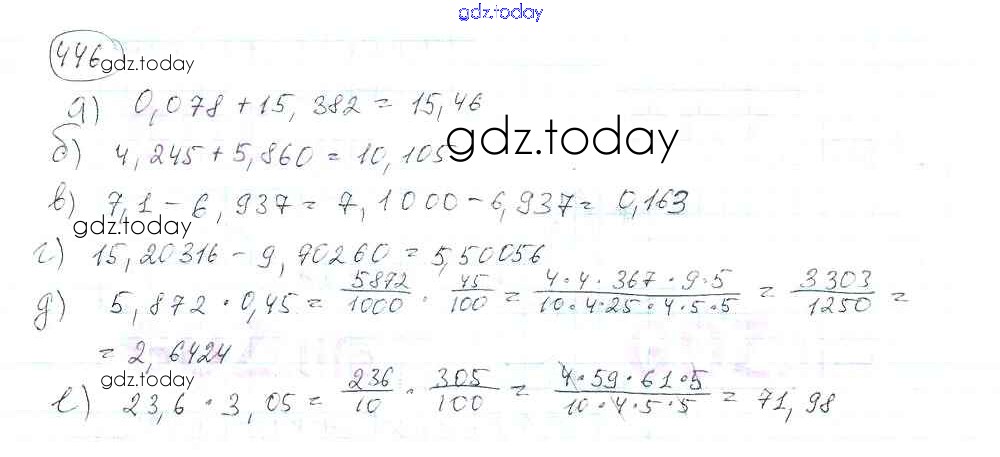 gdz.today
446 gdz.today
а) 0,078 + 15,382 = 15,46
б) 4,245 + 5,860 = 10,105 gdz.today
в) 7,1 - 6,937 = 7,1000 - 6,937 = 0,163
gdz.today
г) 15,20316 - 9,90260 = 5,50056
д) 5,872 · 0,45 = 5872/1000 · 45/100 = 4·4·367·9·5/10·4·25·4·5·5 = 3303/1250 =
= 2,6424
gdz.today
е) 23,6 · 3,05 = 236/10 · 305/100 = 4·59·61·5/10·4·5·5 = 71,98